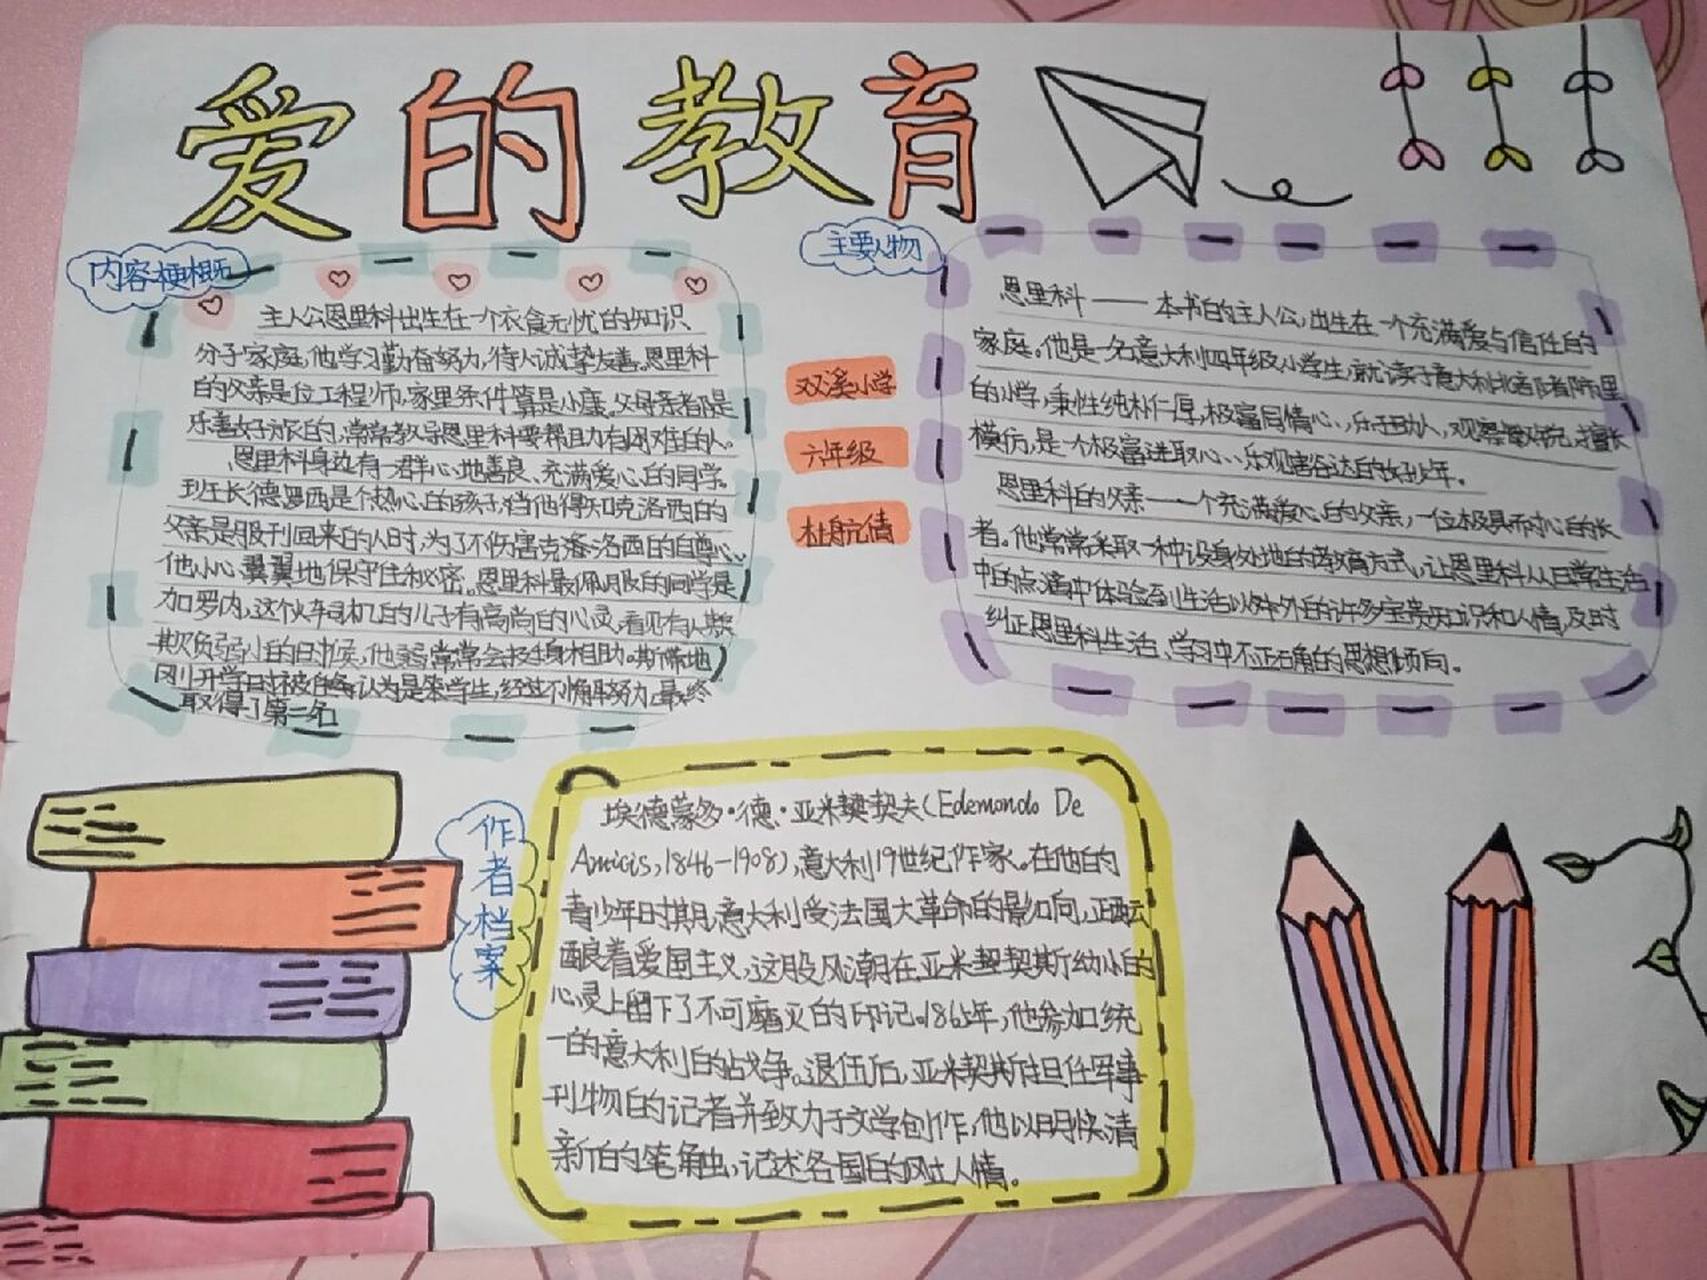 爱的教育
内容梗概
主人公恩里科出生在一个衣食无忧的知识
分子家庭,他学习勤奋努力,待人诚挚友善。恩里科
的父亲是位工程师,家里条件算是小康。父母亲都是
乐善好施的,常常教导恩里科要帮助有困难的人。
恩里科身边有一群心地善良、充满爱心的同学。
班长德罗西是个热心的孩子,当他得知克洛西的
父亲是服刑回来的人时,为了不伤害克洛西的自尊心,
他小心翼翼地保守住秘密。恩里科最佩服的同学是
加罗内,这个火车司机的儿子有高尚的心灵,看见有人
欺负弱小的时候,他常常会挺身相助。斯带地
刚开学时被认为是笨学生,经过不懈努力,最终
取得了第二名
主要人物
恩里科——本书的主人公,出生在一个充满爱与信任的
家庭。他是一名意大利四年级小学生,就读于意大利北部都灵
的小学,秉性纯朴仁厚,极富同情心,乐于助人,观察敏锐,擅长
模仿,是一个极富进取心、乐观豁达的好少年。
恩里科的父亲——一个充满爱心的父亲,一位极具耐心的长
者。他常常采取一种设身处地的教育方式,让恩里科从日常生活
中的点滴中体验到生活以外的许多宝贵知识和人情,及时
纠正恩里科生活、学习中不正确的思想倾向。
双溪小学
六年级
杜航倩
作者档案
埃德蒙多·德·亚米契夫(Edemondo De
Amicis,1846-1908),意大利19世纪作家。在他的
青少年时期,意大利受法国大革命的影响,正酝
酿着爱国主义,这股风潮在亚米契斯幼小的
心灵上留下了不可磨灭的印记。1865年,他参加统
一的意大利的战争。退伍后,亚米契斯担任军事
刊物的记者并致力于文学创作,他以明快清
新的笔触,记述各国的风土人情。